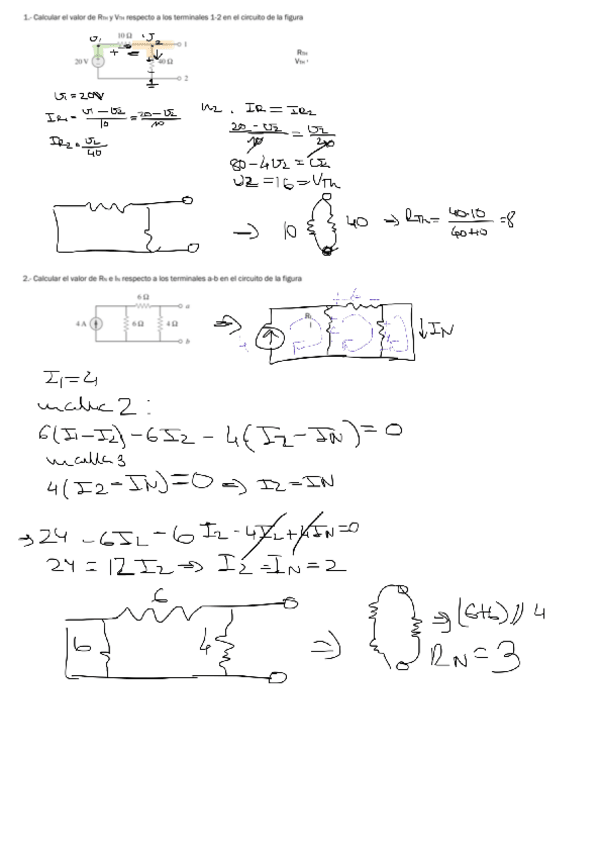 1.- Calcular el valor de RTH y VTH respecto a los terminales 1-2 en el circuito de la figura
V1 10 Ω V2 1
+ -
20 V 40 Ω
2
RTH
VTH
V1 = 20V
IR1 = V1 - V2 / 10 = 20 - V2 / 10
IR2 = V2 / 40
IR1 = IR2
20 - V2 / 10 = V2 / 40
80 - 4V2 = V2
V2 = 16 = VTh
→ 10 40 ⇒ RTh = 40·10 / 40+10 = 8
2.- Calcular el valor de RN e IN respecto a los terminales a-b en el circuito de la figura
6 Ω a
4 A 6 Ω 4 Ω
b
⇒ ↓ IN
I1 = 4
malla 2 :
6(I1 - I2) - 6I2 - 4(I2 - IN) = 0
malla 3
4(I2 - IN) = 0 ⇒ I2 = IN
⇒ 24 - 6I2 - 6I2 - 4I2 + 4IN = 0
24 = 12I2 ⇒ I2 = IN = 2
6
6 4 ⇒ ⇒ (6+6) // 4
RN = 3